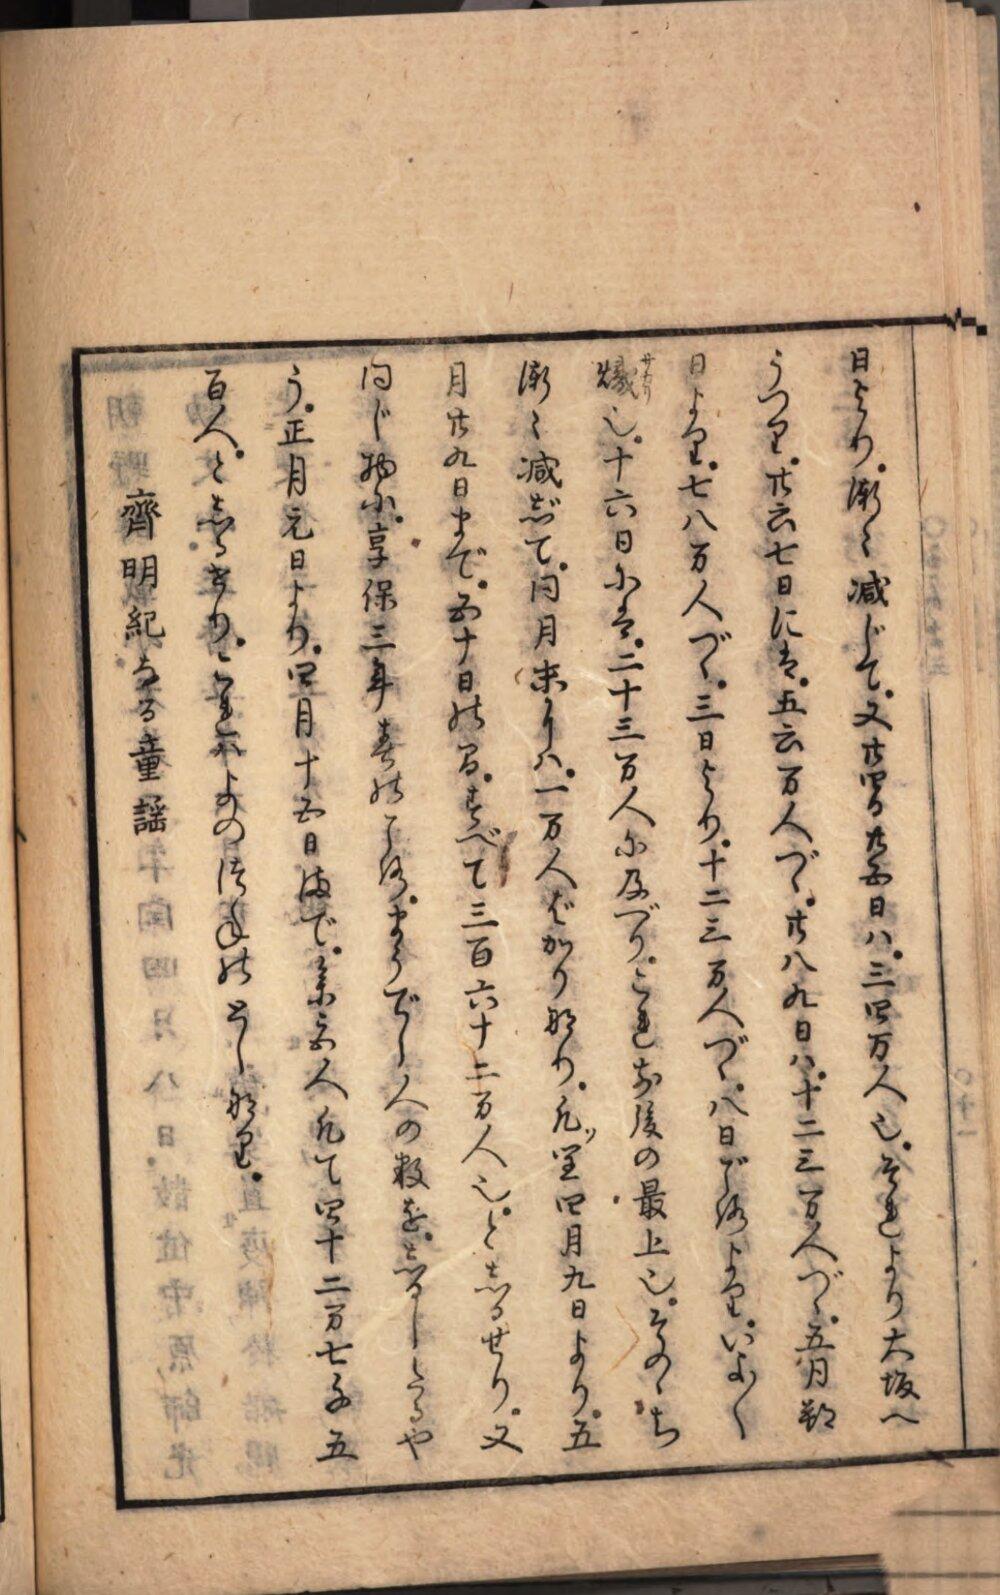 日より。漸々減じて。又廿四日廿五日ハ。三四万人也。それより大坂へ
うつり。廿六七日には。五六万人づゝ。廿八九日ハ。十二三万人づゝ。五月朔
日より。七八万人づゝ。三日より。十二三万人づゝ。八日ごろより。いよ〳〵
熾サカリ也。十六日には。二十三万人に及べり。これ前後の最上也。そのゝち
漸々減じて。同月末よりハ。一万人ばかり也けり。凡ソ閏四月九日より。五
月廿九日まで。五十日の間。すべて三百六十二万人也。としるせり。又
同じ物に。享保三年春のころ。まうでし人の数を。しるしたるや
う。正月元日より。四月十五日まで。参宮人凡て四十二万七千五
百人。としるせり。これハよのつねのとし也けり。
齊明紀なる童謡